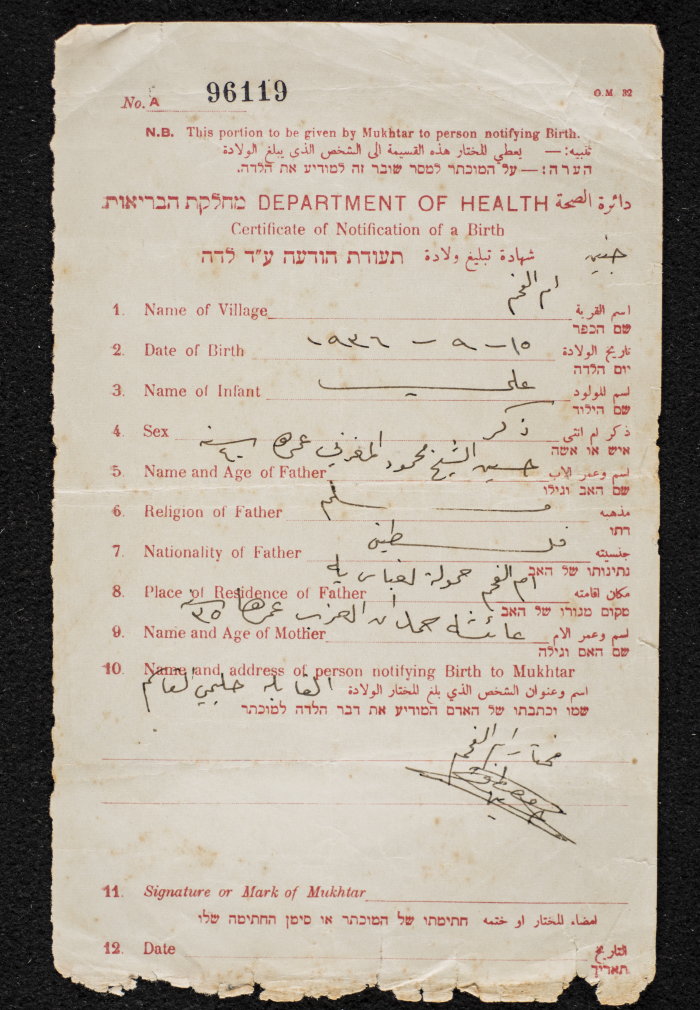 No. A 96119
G.M. 32
N.B. This portion to be given by Mukhtar to person notifying Birth.
تنبيه: — يعطي للختار هذه القسيمة الى الشخص الذي يبلغ الولادة
הערה: — על המוכתר למסר שובר זה למודיע את הלדה.
מחלקת הבריאות. DEPARTMENT OF HEALTH دائرة الصحة
Certificate of Notification of a Birth
תעודת הודעה ע״ד לדה شهادة تبليغ ولادة جنين
1. Name of Village ام الفحم اسم القرية
שם הכפר
2. Date of Birth ١٥ – ٩ – ١٩٣٦ تاريخ الولادة
יום הלדה
3. Name of Infant علي اسم للولود
שם הילוד
4. Sex ذكر ذكر ام انثى
איש או אשה
5. Name and Age of Father حسين الشيخ محمود المغربي عمره ٤٠ سنه اسم وعمر الاب
שם האב וגילו
6. Religion of Father مسلم مذهبه
דתו
7. Nationality of Father فلسطيني جنسيته
נתינותו של האב
8. Place of Residence of Father ام الفحم حمولة مكان اقامته
מקום מגורו של האב
9. Name and Age of Mother عائشه العزب عمرها ٣٥ اسم وعمر الام
שם האם וגילה
10. Name and address of person notifying Birth to Mukhtar
اسم وعنوان الشخص الذي بلغ للختار الولادة القابله
שמו וכתבתו של האדם המודיע את דבר הלדה למוכתר
مختار ام الفحم
11. Signature or Mark of Mukhtar
امضاء للختار او ختمه חתימתו של המוכתר או סימן החתימה שלו
12. Date التاريخ
תאריך